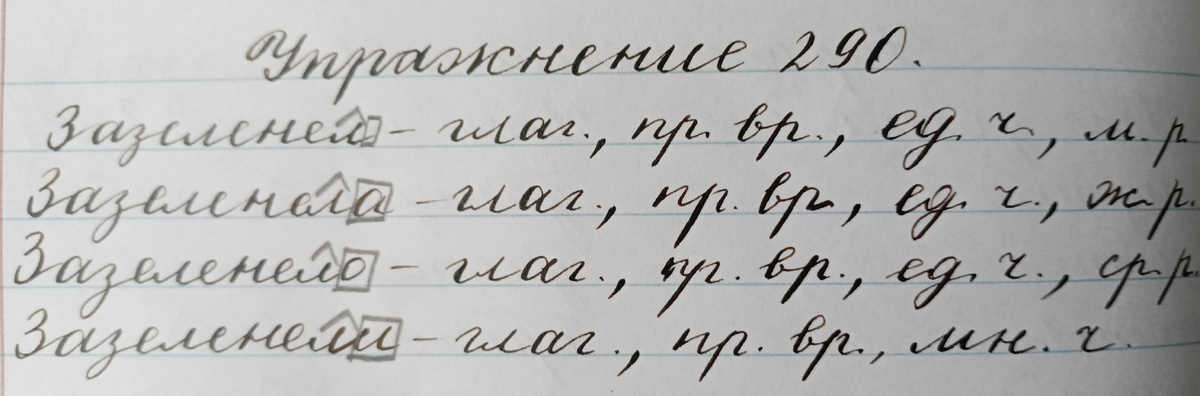 Упражнение 290.
Зазеленел – глаг., пр. вр., ед. ч., м. р.
Зазеленела – глаг., пр. вр., ед. ч., ж. р.
Зазеленело – глаг., пр. вр., ед. ч., ср. р.
Зазеленели – глаг., пр. вр., мн. ч.